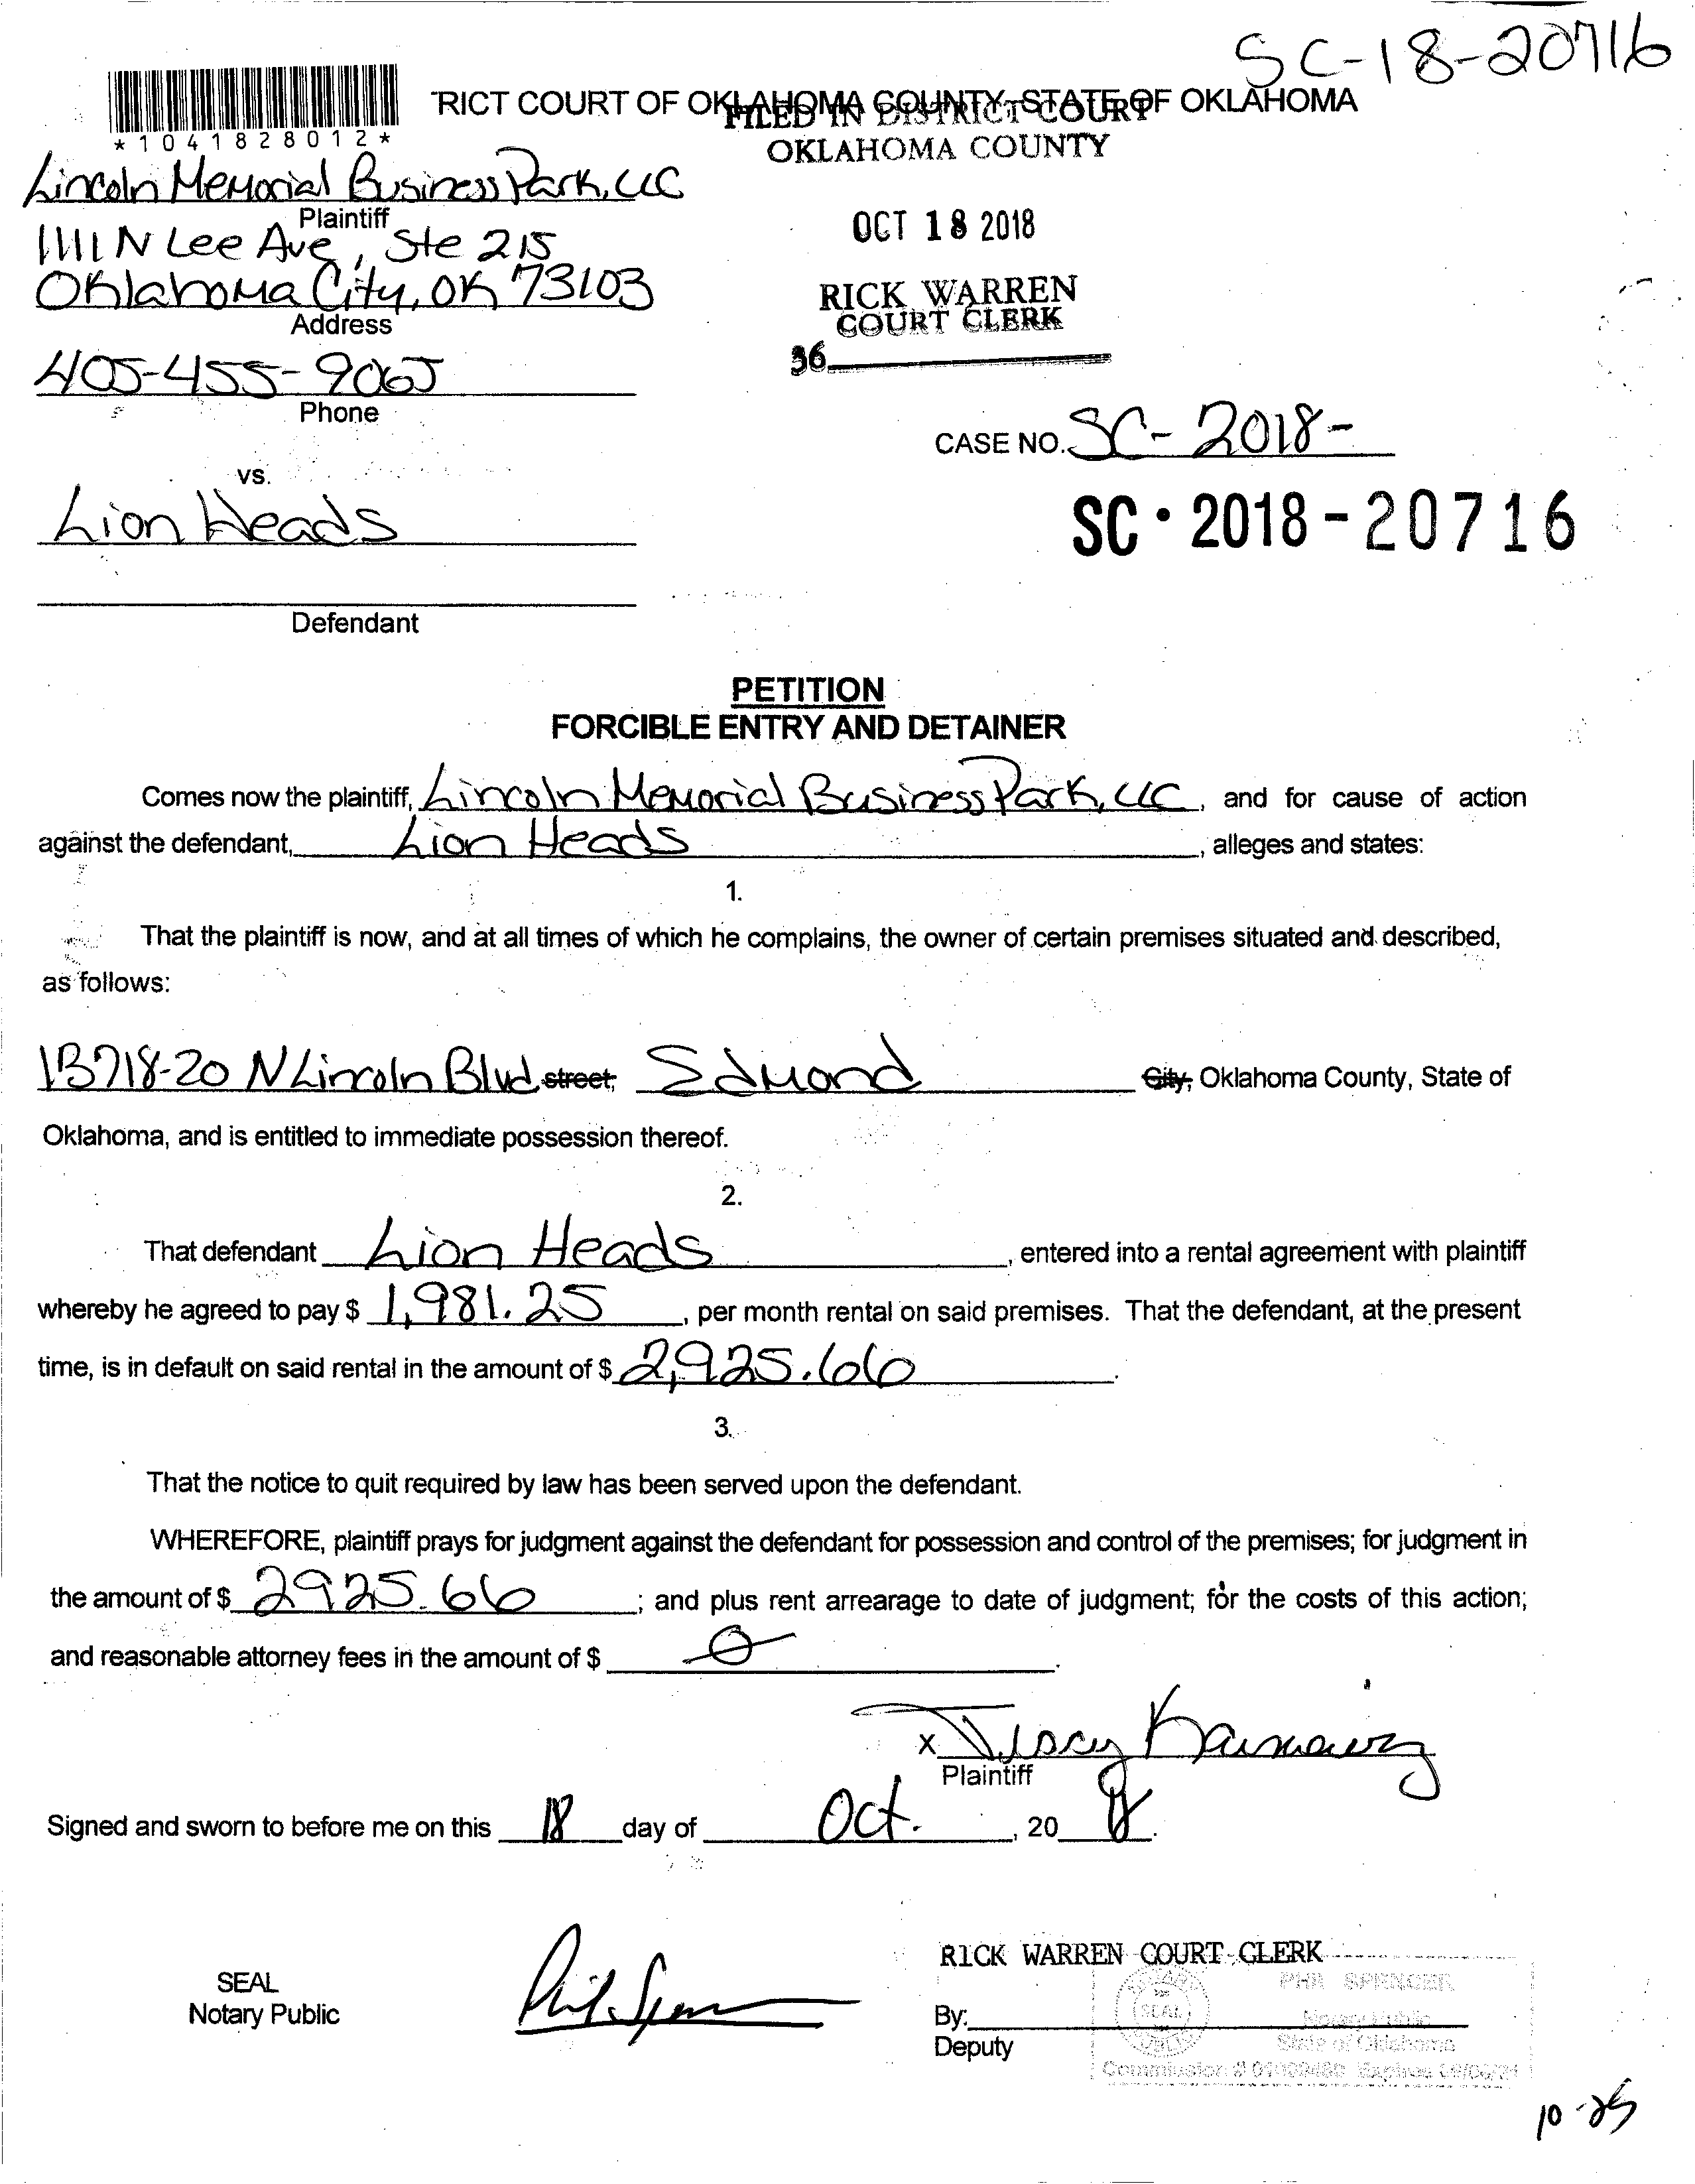 SC-18-20716
*1041828012*
RICT COURT OF OKLAHOMA COUNTY, STATE OF OKLAHOMA
FILED IN DISTRICT COURT
OKLAHOMA COUNTY
Lincoln Memorial Business Park, LLC
Plaintiff
1111 N Lee Ave, Ste 215
OCT 18 2018
Oklahoma City, OK 73103
Address
RICK WARREN
COURT CLERK
36
405-455-9065
Phone
CASE NO. SC-2018-
vs.
Lion Heads
SC-2018-20716
Defendant
PETITION
FORCIBLE ENTRY AND DETAINER
Comes now the plaintiff, Lincoln Memorial Business Park, LLC, and for cause of action
against the defendant, Lion Heads, alleges and states:
1.
That the plaintiff is now, and at all times of which he complains, the owner of certain premises situated and described,
as follows:
13718-20 N Lincoln Blvd street, Edmond City, Oklahoma County, State of
Oklahoma, and is entitled to immediate possession thereof.
2.
That defendant Lion Heads, entered into a rental agreement with plaintiff
whereby he agreed to pay $ 1,981.25, per month rental on said premises. That the defendant, at the present
time, is in default on said rental in the amount of $ 2,925.66.
3.
That the notice to quit required by law has been served upon the defendant.
WHEREFORE, plaintiff prays for judgment against the defendant for possession and control of the premises; for judgment in
the amount of $ 2925.66; and plus rent arrearage to date of judgment; for the costs of this action;
and reasonable attorney fees in the amount of $ 0.
x Tracy
Plaintiff
Signed and sworn to before me on this 18 day of Oct., 2018.
RICK WARREN COURT CLERK
SEAL
Notary Public
Phil Spencer
By:
Deputy
SEAL
PHIL SPENCER
Notary Public
State of Oklahoma
10-25